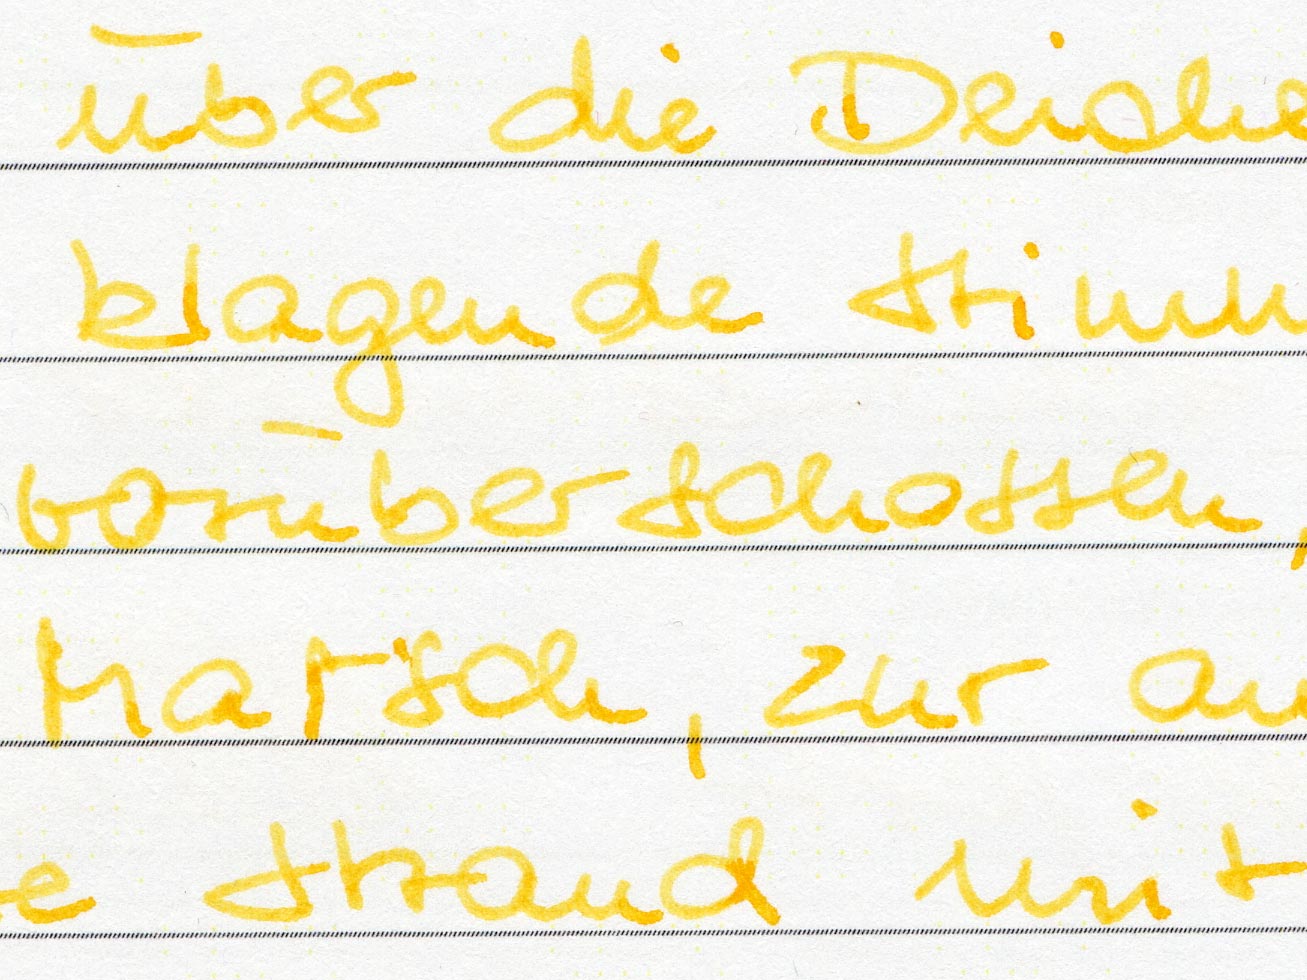 über die Deiche
klagende Stimm
vorüberschossen,
Marsch, zur an
e Strand mit